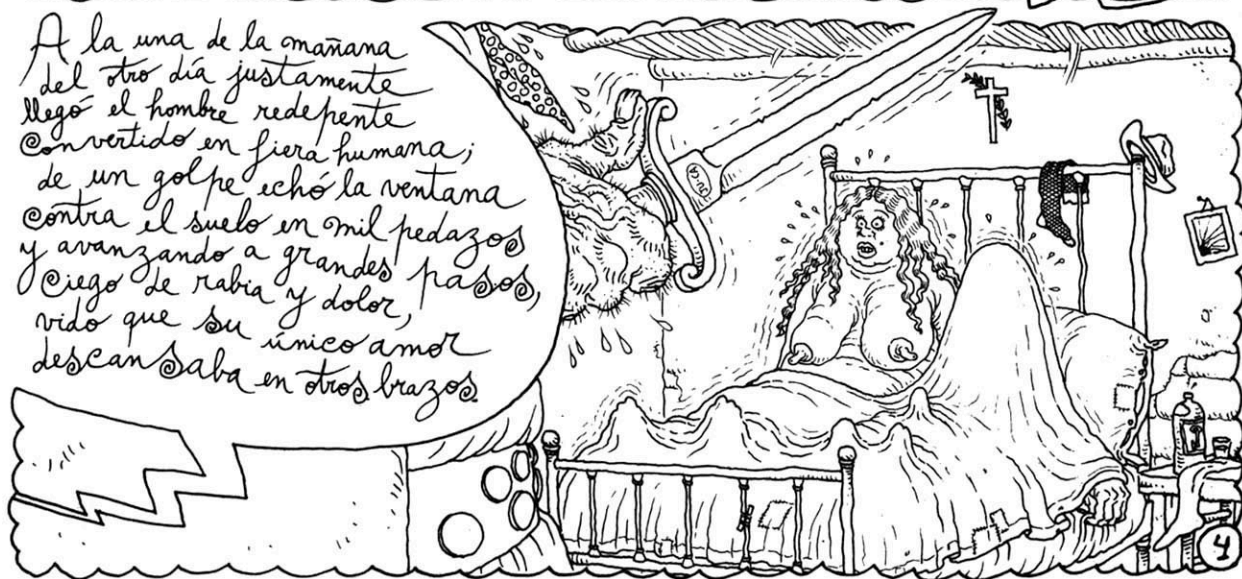 A la una de la mañana
del otro día justamente
llegó el hombre redepente
convertido en fiera humana;
de un golpe echó la ventana
contra el suelo en mil pedazos
y avanzando a grandes pasos,
ciego de rabia y dolor,
vido que su único amor
descansaba en otros brazos.
DU-CA
4